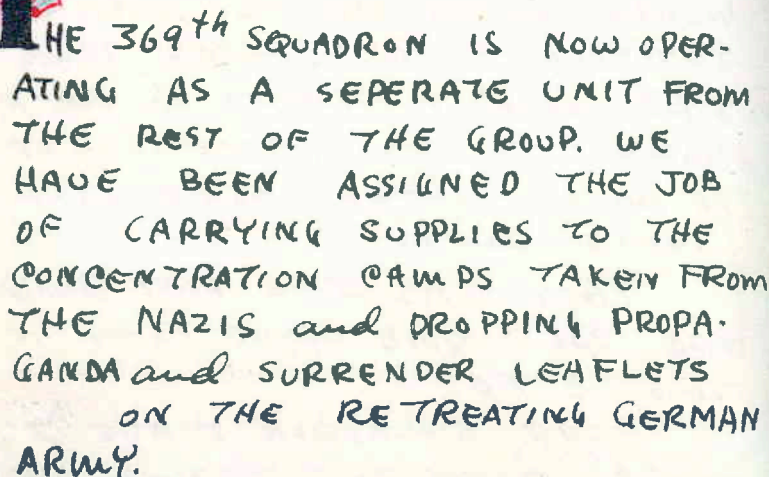 THE 369th SQUADRON IS NOW OPER-
ATING AS A SEPERATE UNIT FROM
THE REST OF THE GROUP. WE
HAVE BEEN ASSIGNED THE JOB
OF CARRYING SUPPLIES TO THE
CONCENTRATION CAMPS TAKEN FROM
THE NAZIS and DROPPING PROPA-
GANDA and SURRENDER LEAFLETS
ON THE RETREATING GERMAN
ARMY.